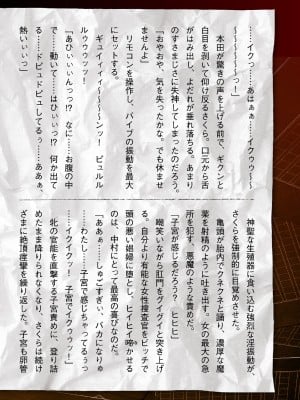 ……イクゥ……あはぁぁ……イクゥゥ～
～～～～～～っ！」
　本田が驚きの声を上げる前で、ギクンと
白目を剥いて仰け反るさくら。口元から舌
がはみ出し、よだれが垂れ落ちる。あまり
のすさまじさに失神してしまったのだろう。
「おやおや、気を失ったかな。でも休ませ
ませんよ」
　リモコンを操作し、バイブの振動を最大
にセットする。
　ギュイィィィ～～～～ンッ！　ビュルル
ルゥゥゥッッ！
「あひぃぃぃんっっ!?　なに……お腹の中
で……動いて……はひぃぃっ!?　何か出て
る……ドビュドビュしてるぅ……ああぁ、
熱いぃぃっ」
　神聖な生殖器に食い込む強烈な淫振動が、
さくらを強制的に目覚めさせた。
　亀頭が胎内でクネクネと踊り、濃厚な魔
薬を射精のように吐き出す。女の最大の急
所を犯す、悪魔のような責めだ。
「子宮が感じるだろう？　ヒヒヒ」
　嘲笑いながら肛門をグイグイと突き上げ
る。自分より有能な女性捜査官をビッチで
頭の悪い娼婦に堕とし、ヒイヒイ啼かせる
のは、中村にとって最高の喜びなのだ。
「あああ……しゅごすぎぃ、バカになりゅ
……わたし……子宮で感じちゃってるぅっ
……イクイクッ！　子宮でイクゥゥッ！」
　牝の官能を直撃する子宮責めに、登り詰
めたまま降りられなくなり、さくらは続け
ざまに絶頂痙攣を繰り返した。子宮も卵管